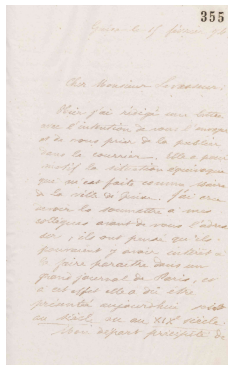 355
Guise le 15 février 74
Cher Monsieur
Hier j'ai rédigé une lettre
avec l'intention de vous l'envoyer
et de vous prier de la publier
dans le courrier. Elle a pour
motif la situation
qui m'est faite comme maire
de la ville de Guise. J'ai cru
devoir la soumettre à mes
collègues avant de vous
ils ont pensé qu'ils
pouvaient y avoir intérêt à
la faire paraître dans un
grand journal de Paris, et
à cet effet elle a dû être
présentée aujourd'hui
au Siècle, ou au XIXe siècle.
Mon départ précipité de